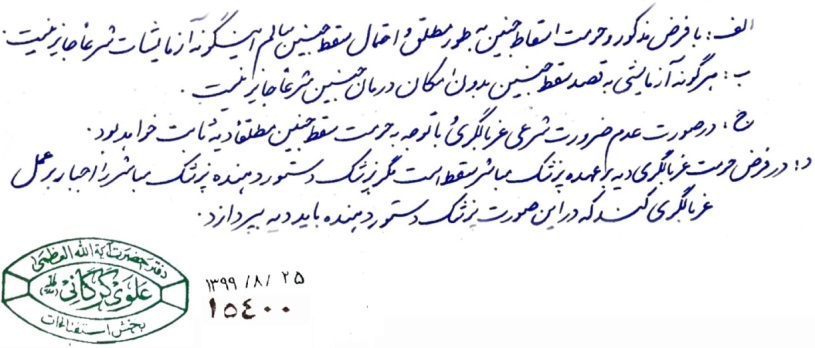 الف: با فرض مذکور و حرمت اسقاط جنین به طور مطلق و احتمال سقط جنین سالم اینگونه آزمایشات شرعاً جایز نیست.
ب: هرگونه آزمایشی به قصد سقط جنین بدون امکان درمان جنین شرعاً جایز نیست.
ج: در صورت عدم ضرورت شرعی غربالگری با توجه به حرمت سقط جنین مطلقاً دیه ثابت خواهد بود.
د: در فرض حرمت غربالگری دیه بر عهده پزشک مباشر سقط است مگر پزشک دستور دهنده پزشک مباشر را اجبار بر عمل
غربالگری کند که در این صورت پزشک دستور دهنده باید دیه بپردازد.
۱۳۹۹/۸/۲۵
۱۵٤۰۰
دفتر حضرت آیة الله العظمی
علوی گرگانی
بخش استفتائات